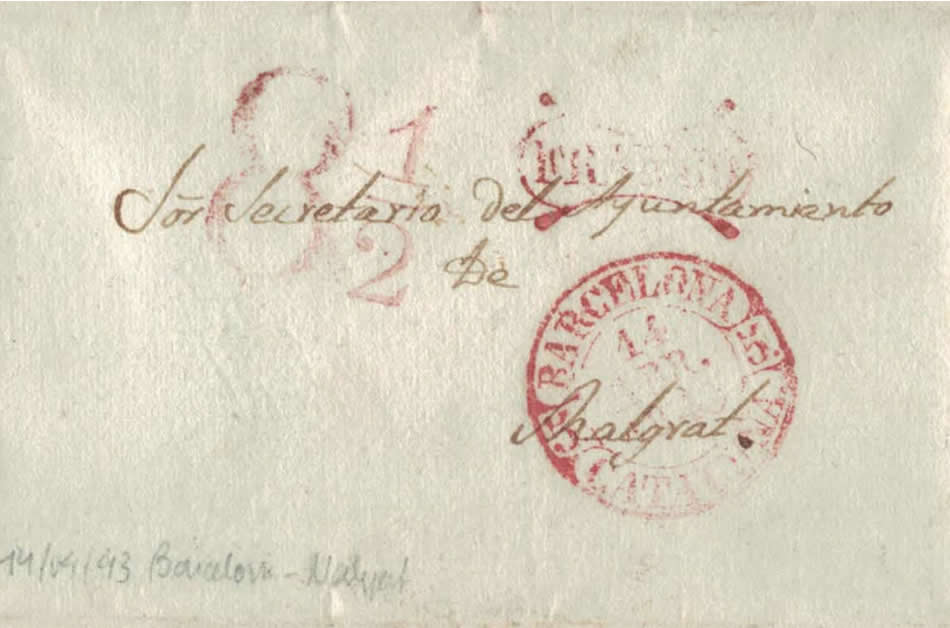 8 1/2
Sōr Secretario del Ayuntamiento
De
Malgrat.
BARCELONA
14
ABR.
CATALUÑA
14/04/43 Barcelona - Malgrat